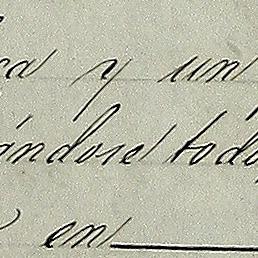 ca y un
ándose todo
en